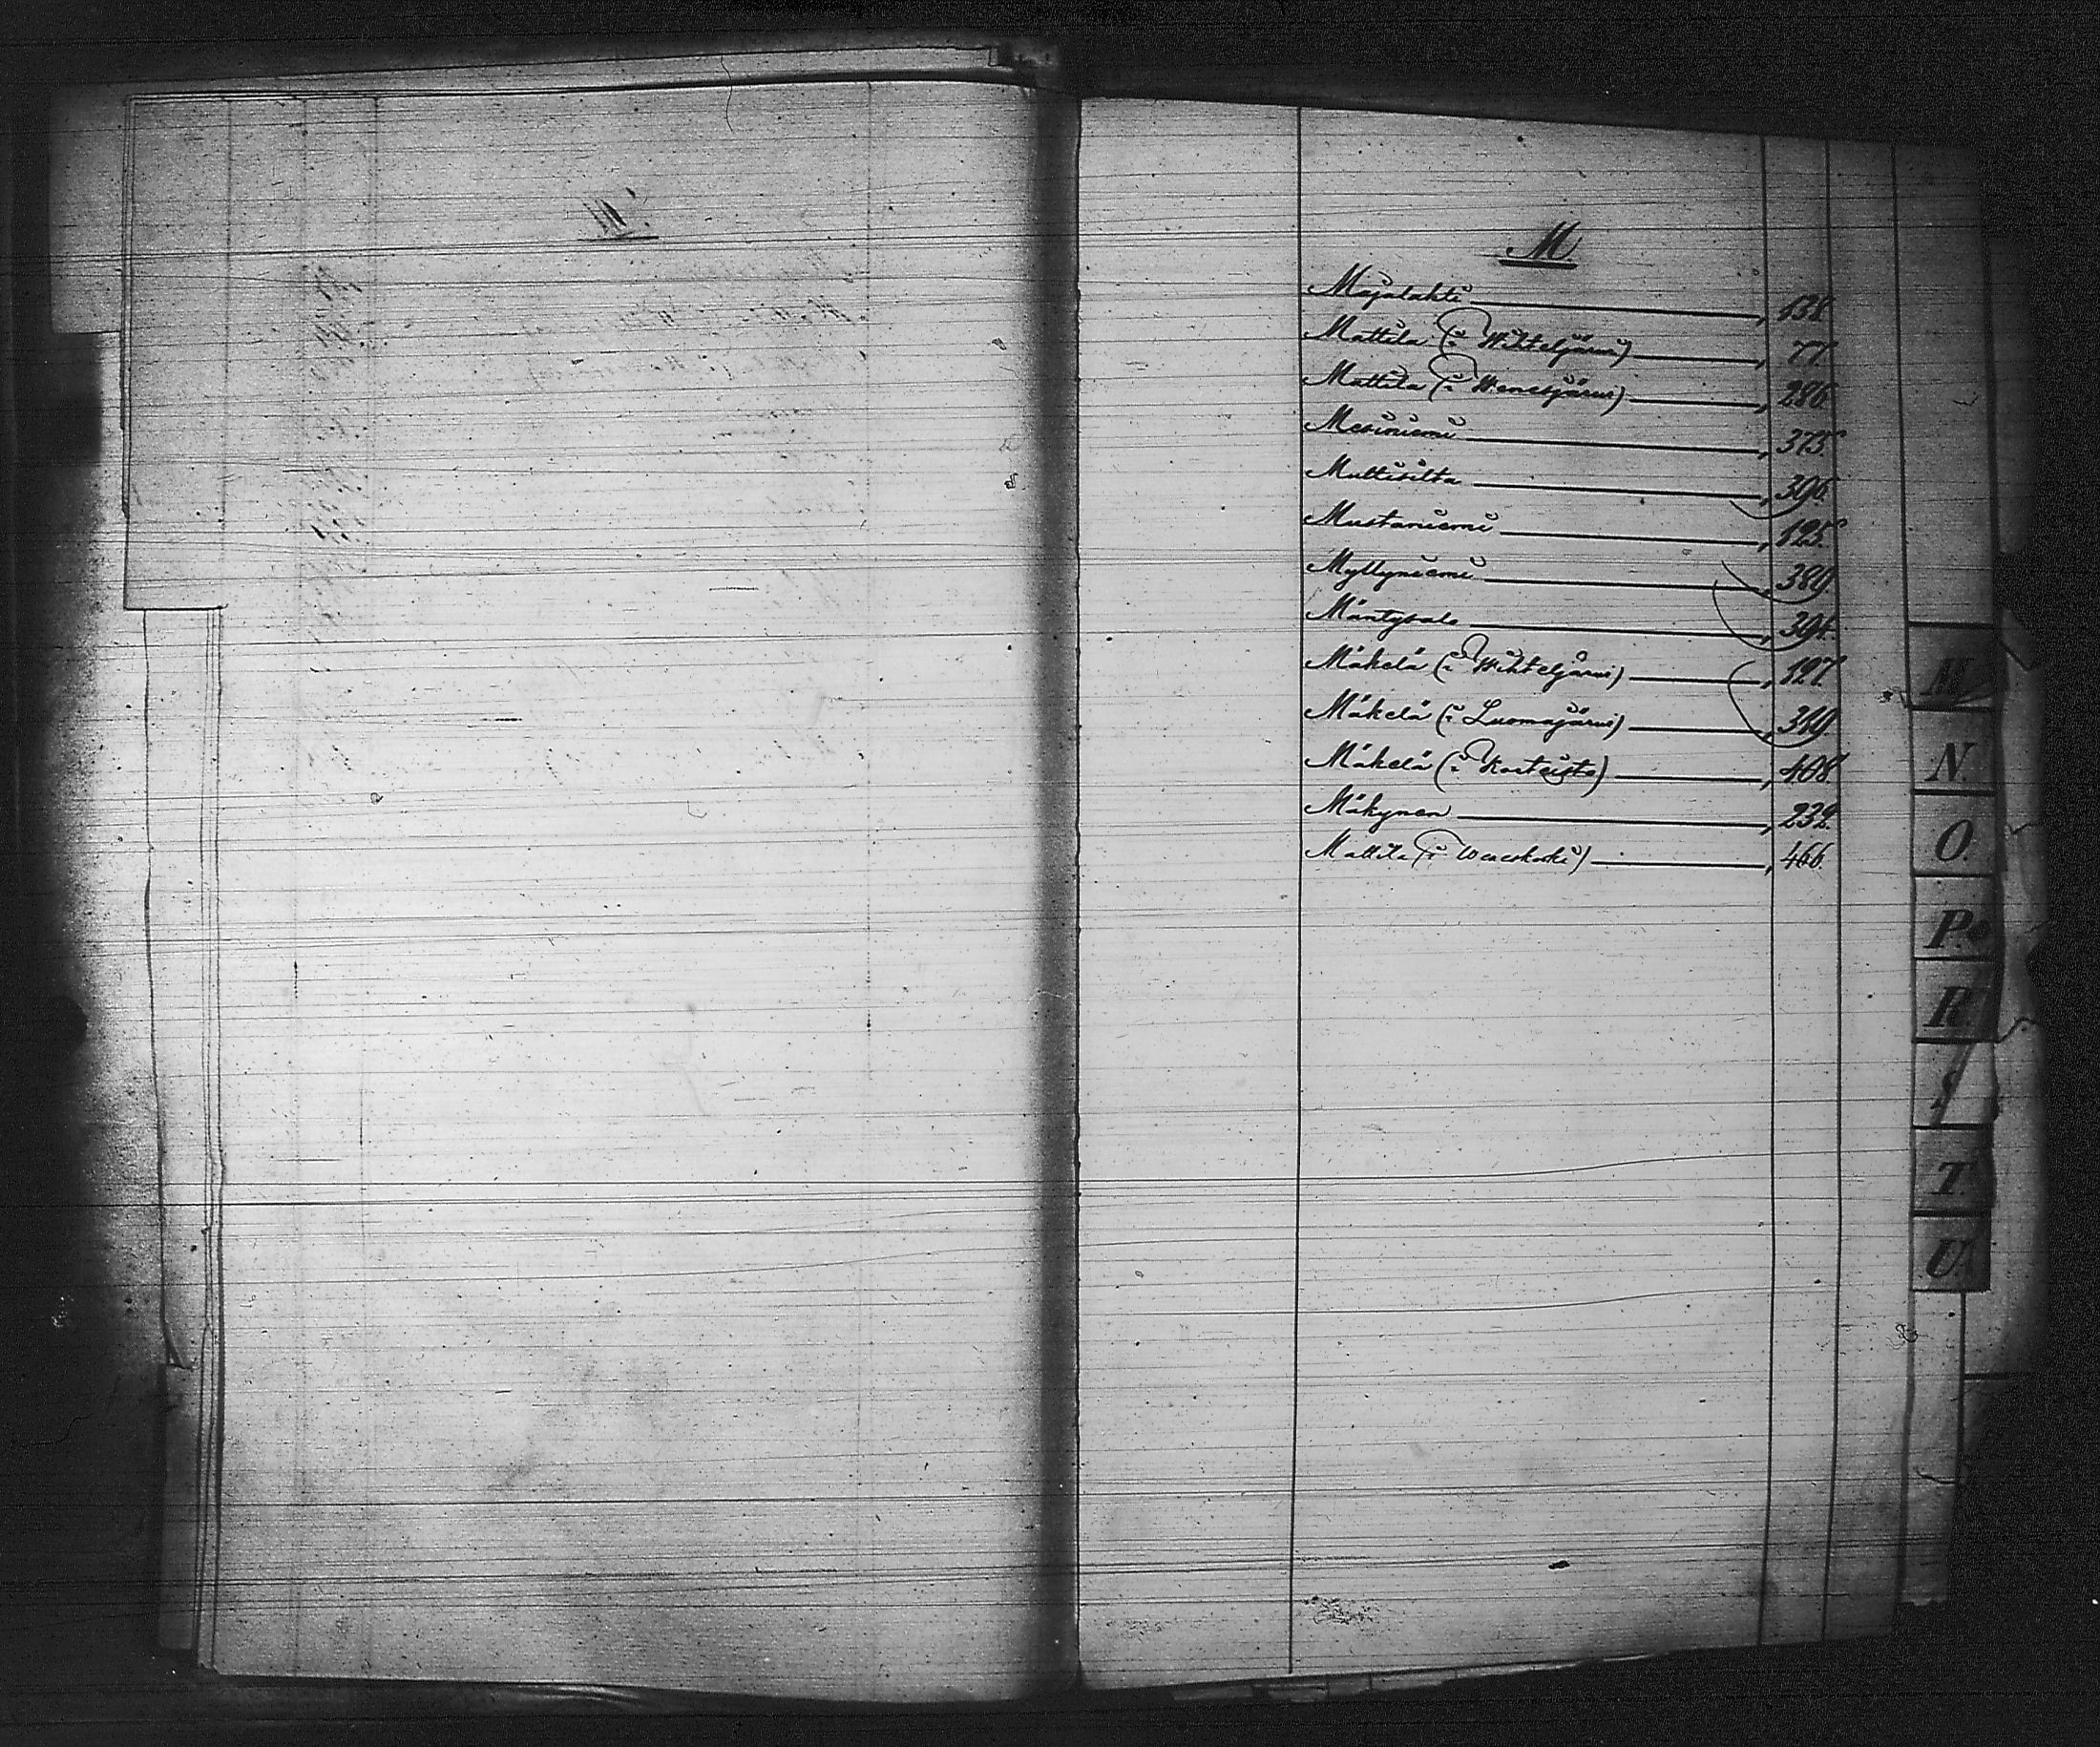 M.
Majalahti , 138.
Mattila (i Wihteljärvi) , 77.
Mattila (i Wenesjärvi) , 286.
Mesiniemi , 375.
Multisilta , 396.
Mustaniemi , 125.
Myllyniemi , 389.
Mäntysalo , 391.
Mäkelä (i Wihteljärvi) , 127.
Mäkelä (i Luomajärvi) , 349.
Mäkelä (i Karteisto) , 408.
Mäkynen , 232.
Mattila (i Weneskoski) , 466.
M
N.
O.
P.
R.
S
T.
U.